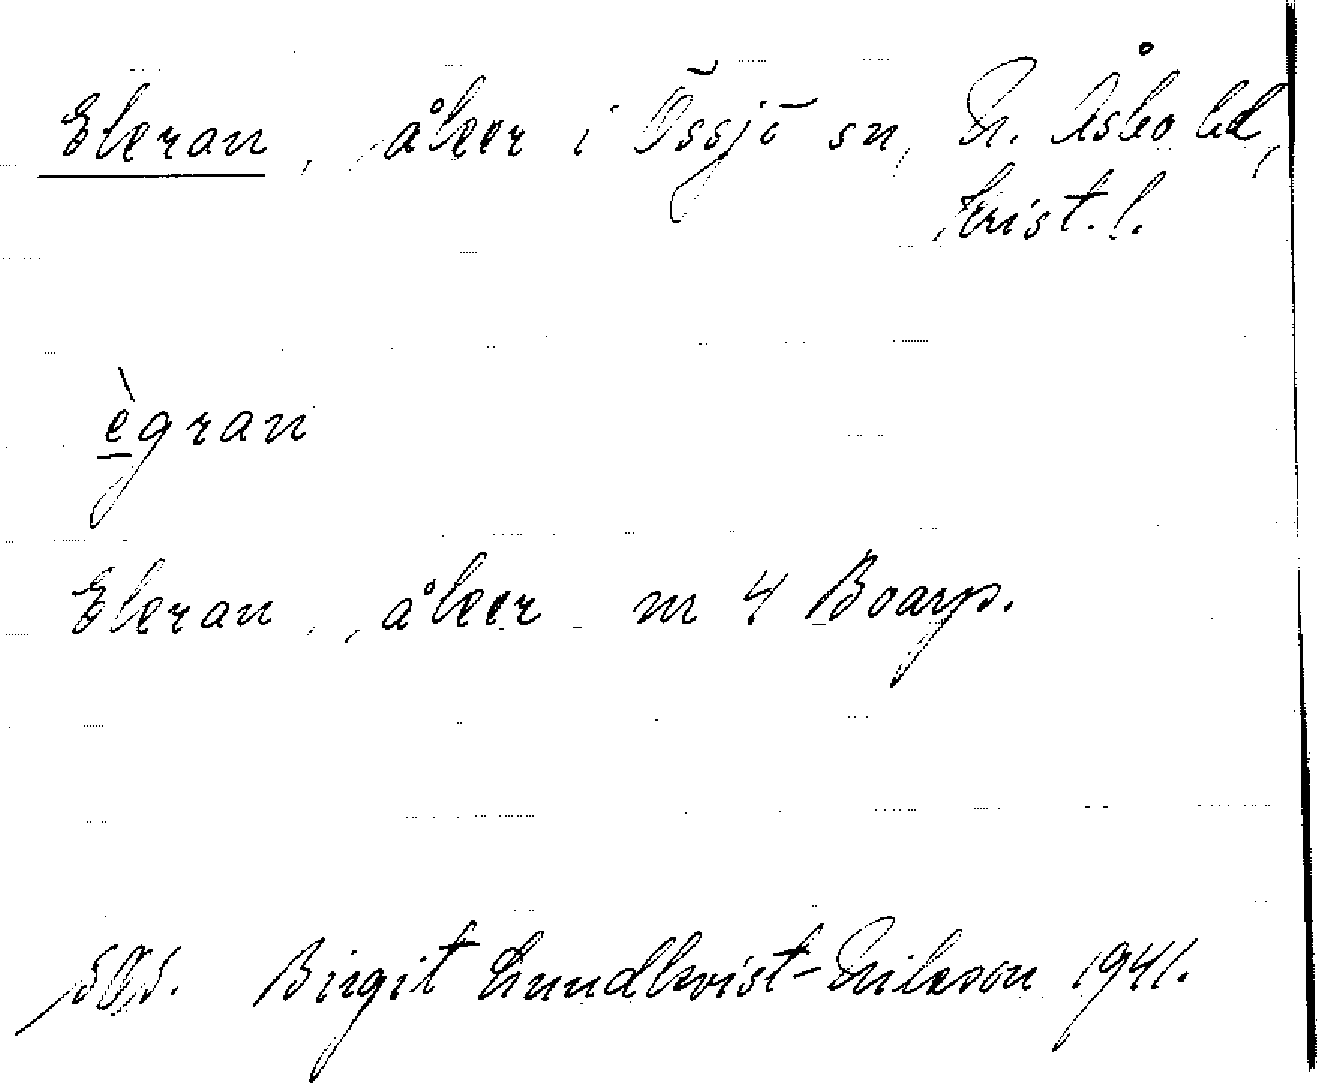 Ekran, åker i Össjö sn, N. Åsbo hd,
Krist. l.
ègran
Ekran, åker nr 4 Boarp.
Birgit Lundkvist-Nilsson 1941.